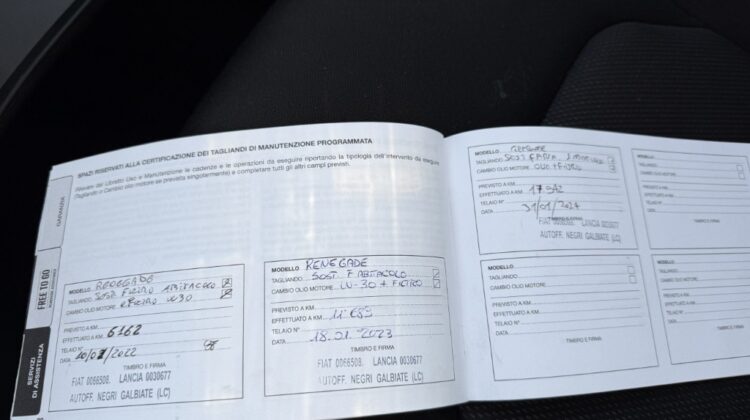 SPAZI RISERVATI ALLA CERTIFICAZIONE DEI TAGLIANDI DI MANUTENZIONE PROGRAMMATA
Rilevare dal Libretto Uso e Manutenzione le cadenze e le operazioni da eseguire riportando la tipologia dell'intervento da eseguire
(Tagliando o Cambio olio motore se previsto singolarmente) e completare tutti gli altri campi previsti.
GARANZIA
FREE TO GO
SERVIZI
DI ASSISTENZA
MODELLO RENEGADE
TAGLIANDO SOST FILTRO ABITACOLO
CAMBIO OLIO MOTORE 0W30
PREVISTO A KM
EFFETTUATO A KM 6162
TELAIO N°
DATA 2022
TIMBRO E FIRMA
FIAT 0066508. LANCIA 0030677
AUTOFF. NEGRI GALBIATE (LC)
MODELLO RENEGADE
TAGLIANDO SOST F ABITACOLO
CAMBIO OLIO MOTORE 0W-30 + FILTRO
PREVISTO A KM
EFFETTUATO A KM 11'683
TELAIO N°
DATA 18.01.2023
TIMBRO E FIRMA
FIAT 0066508. LANCIA 0030677
AUTOFF. NEGRI GALBIATE (LC)
MODELLO RENEGADE
TAGLIANDO SOST
CAMBIO OLIO MOTORE OLIO+FILTRO
PREVISTO A KM
EFFETTUATO A KM
TELAIO N°
DATA 31/01/2024
TIMBRO E FIRMA
FIAT 0066508. LANCIA 0030677
AUTOFF. NEGRI GALBIATE (LC)
MODELLO
TAGLIANDO
CAMBIO OLIO MOTORE
PREVISTO A KM
EFFETTUATO A KM
TELAIO N°
DATA
TIMBRO E FIRMA
MODELLO
TAGLIANDO
CAMBIO OLIO MOTORE
PREVISTO A KM
EFFETTUATO A KM
TELAIO N°
DATA
TIMBRO E FIRMA
MODELLO
TAGLIANDO
CAMBIO OLIO MOTORE
PREVISTO A KM
EFFETTUATO A KM
TELAIO N°
DATA